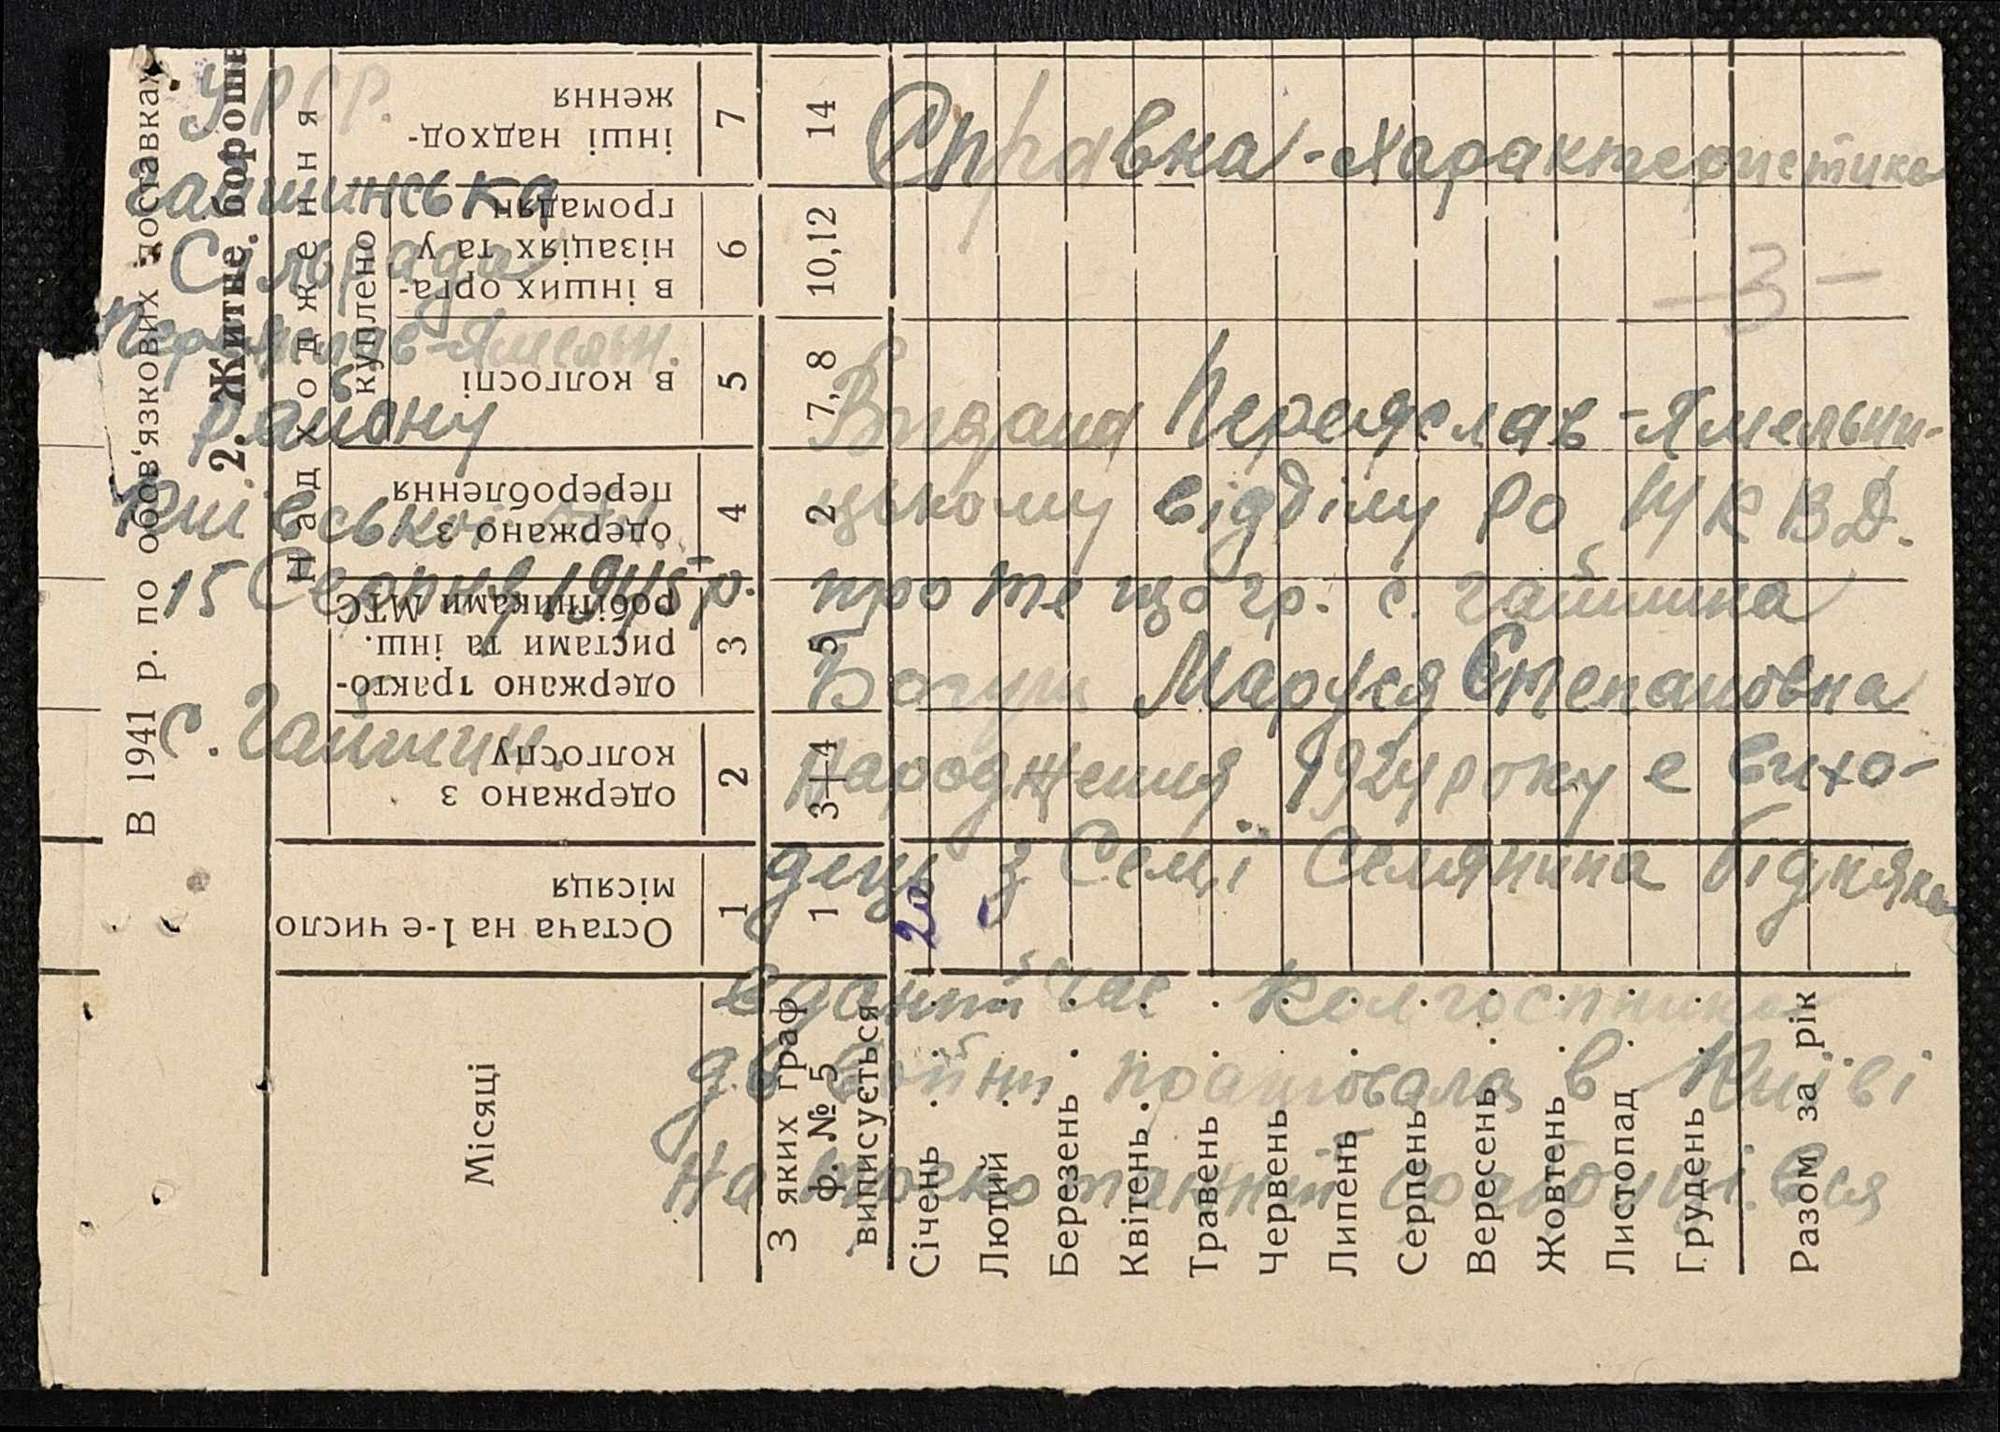 УРСР.
Гайшинська
Сільрада
Переяслав-Хмельн.
району
Київської обл.
15 Серпня 1945 р.
С. Гайшин.
Справка-Характеристика
-3-
Видана Переяслав-Хмельни-
цькому відділу РО НКВД.
про те що гр. с. Гайшина
Богуш Маруся Степановна
народження 1924 року є вихо-
дець з Семї Селянина бідняка
в даний час колгоспниця
до войни працювала в Київі
на трекотажній
В 1941 р. по обов'язкових поставках
2. Житнє борошн
Надходження
Місяці
Остача на 1-е число місяця
одержано з колгоспу
одержано тракто-
ристами та інш.
робітниками МТС
одержано з перероблення
куплено
в колгоспі
в інших орга-
нізаціях та у
громадян
інші надход-
ження
1 2 3 4 5 6 7
З яких граф
ф. № 5
виписується
1 3+4 5 2 7, 8 10,12 14
Січень 20 -
Лютий
Березень
Квітень
Травень
Червень
Липень
Серпень
Вересень
Жовтень
Листопад
Грудень
Разом за рік